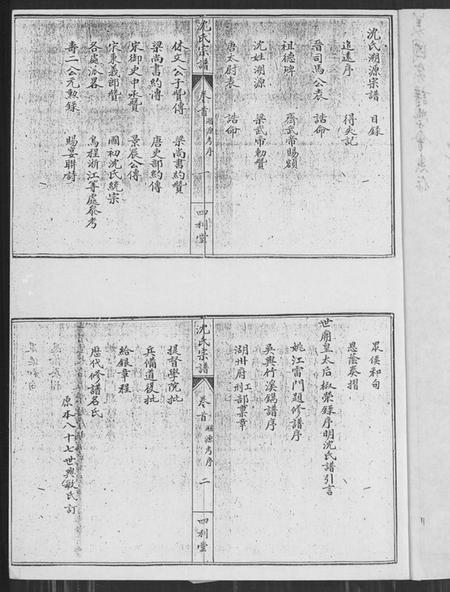 沈氏溯源宗譜 目錄
追遠序 得失記
晉司馬公表 誥命
祖德碑 齊武帝賜額
沈姓溯源 梁武帝勅贊
唐太尉表 誥命
沈氏宗譜 卷首 溯源考序 一 四利堂
休文公子賢傳 梁尚書約贊
梁尚書約傳 唐吏部約傳
宋御史中丞贊 景辰公傳
宋秉義郎贊 國初沈氏統宗
各處派名 烏程浙江等處參考
壽二公元勲錄 賜宴聯詩
眾侯和句
恩蔭奏摺
世廟皇太后椒榮錄序明沈氏譜引言
姚江雷門題修譜序
吳興竹溪錫譜序
湖州府刑工部稟章
沈氏宗譜 卷首 溯源考序 二 四利堂
提督學院批
兵備道復批
給銀章程
歷代修譜名氏
原本八十七世興敏氏訂